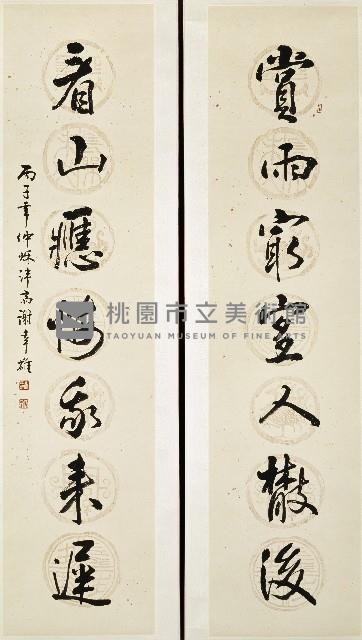 賞雨冣宜人散後
看山應悔我來遲
丙子年仲秌沛高謝幸雄
桃園市立美術館
TAOYUAN MUSEUM OF FINE ARTS